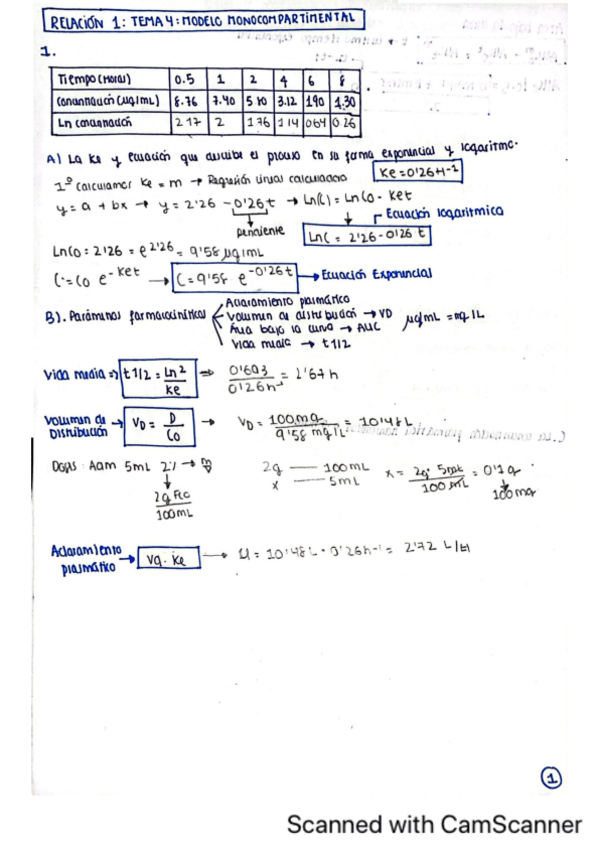 RELACIÓN 1: TEMA 4: MODELO MONOCOMPARTIMENTAL
1.
Tiempo (Horas) 0.5 1 2 4 6 8
Concentración (µg/mL) 8.76 7.40 5.10 3.12 1.90 1.30
Ln concentración 2.17 2 1.76 1.14 0.64 0.26
A) La Ke y ecuación que describe el proceso en su forma exponencial y logaritmo.
1º Calculamos Ke = m → Regresión lineal calculadora
Ke = 0'26 H-1
y = a + bx → y = 2'26 - 0'26 t → Ln(C) = Ln Co - Ket
pendiente
Ecuación logarítmica
LnC = 2'26 - 0'26 t
LnCo = 2'26 = e^2'26 = 9'58 µg/mL
C = Co e^-Ket → C = 9'58 e^-0'26t → Ecuación Exponencial
B). Parámetros farmacocinéticos
Aclaramiento plasmático
Volumen de distribución → VD
Área bajo la curva → AUC
Vida media → t1/2
µg/mL = mg/L
Vida media => t1/2 = Ln2 / Ke => 0'693 / 0'26h-1 = 2'67 h
Volumen de Distribución → VD = D / Co → VD = 100mg / 9'58 mg/L = 10'48 L
Dosis: 5mL 2% →
2g Fco / 100mL
2g — 100mL
x — 5mL
x = 2g · 5mL / 100 mL = 0'1 g
100mg
Aclaramiento plasmático → Vd · Ke → Cl = 10'48 L · 0'26h-1 = 2'72 L/H
1
Scanned with CamScanner